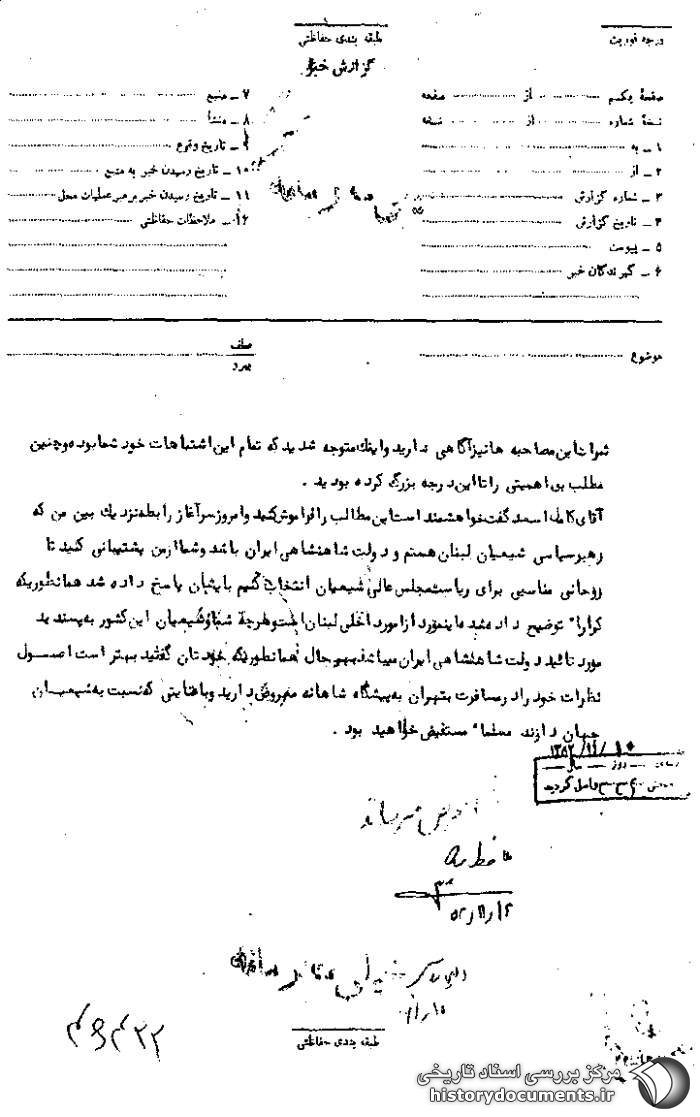 درجه فوریت
طبقه بندی حفاظتی
گزارش خبر
صفحهٔ یکم از صفحه
نسخهٔ شماره از نسخه
۱ ـ به
۲ ـ از
۳ ـ شماره گزارش
۴ ـ تاریخ گزارش
۵ ـ پیوست
۶ ـ گیرندگان خبر
۷ ـ منبع
۸ ـ منشأ
۹ ـ تاریخ وقوع
۱۰ ـ تاریخ رسیدن خبر به منبع
۱۱ ـ تاریخ رسیدن خبر برهبر عملیات محل
۱۲ ـ ملاحظات حفاظتی
موضوع
عطف
بهرد
شما از این مصاحبه ها نیز آگاهی ندارید و اینك متوجه شدید که تمام این اشتباهات خود شما بوده و چنین
مطلب بی اهمیتی را تا این درجه بزرگ کرده بودید .
آقای کامل اسعد گفت خواهشمند است این مطالب را فراموش کنید و امروز سرآغاز رابطه نزدیك بین من که
رهبر سیاسی شیعیان لبنان هستم و دولت شاهنشاهی ایران باشد و شما از من پشتیبانی کنید تا
روحانی مناسبی برای ریاست مجلس عالی شیعیان انتخاب کنیم بایشان پاسخ داده شد همانطوریکه
کرارا" توضیح داده شد اینمورد از امور داخلی لبنان است و هرچه شما و شیعیان این کشور به پسندید
مورد تائید دولت شاهنشاهی ایران میباشد بهرحال همانطوریکه خودتان گفتید بهتر است اصول
نظرات خود را در مسافرت بتهران به پیشگاه شاهانه معروض دارید و با عنایتی که نسبت به شیعیان
جهان دارند مسلما" مستفیض خواهید بود .
۱۳۵۲/۱۱/۱۰
روز سال
واصل گردید
بعرض میرساند
۵۲/۱۱/۱۶
طبقه بندی حفاظتی
مرکز بررسی اسناد تاریخی
historydocuments.ir